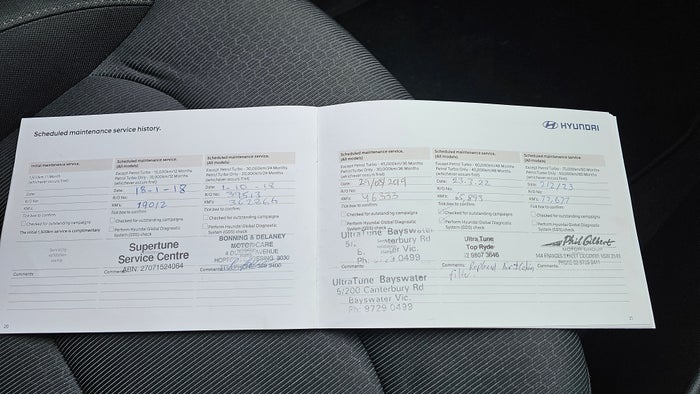 Scheduled maintenance service history.
HYUNDAI
Initial maintenance service.
1,500km / 1 Month
(whichever occurs first)
Date:
R/O No:
KM's:
Tick box to confirm:
Checked for outstanding campaigns
The initial 1,500km service is complimentary
Comments:
Scheduled maintenance service.
(All models)
Except Petrol Turbo - 15,000km/12 Months
Petrol Turbo Only - 10,000km/12 Months
(whichever occurs first)
Date: 18-1-18
R/O No:
KM's: 19012
Tick box to confirm:
Checked for outstanding campaigns
Perform Hyundai Global Diagnostic
System (GDS) check
Supertune
Service Centre
ABN: 27071524064
Comments:
Scheduled maintenance service.
(All models)
Except Petrol Turbo - 30,000km/24 Months
Petrol Turbo Only - 20,000km/24 Months
(whichever occurs first)
Date: 1-10-18
R/O No:
KM's:
Tick box to confirm:
Checked for outstanding campaigns
Perform Hyundai Global Diagnostic
System (GDS) check
BONNING & DELANEY
MOTORCARE
Comments:
20
Scheduled maintenance service.
(All models)
Except Petrol Turbo - 45,000km/36 Months
Petrol Turbo Only - 30,000km/36 Months
(whichever occurs first)
Date:
R/O No:
KM's: 46333
Tick box to confirm:
Checked for outstanding campaigns
Perform Hyundai Global Diagnostic
System (GDS) check
UltraTune Bayswater
Canterbury Rd
Vic.
Ph: 9729 0499
Comments:
UltraTune Bayswater
5/200 Canterbury Rd
Bayswater Vic.
Ph: 9729 0499
Scheduled maintenance service.
(All models)
Except Petrol Turbo - 60,000km/48 Months
Petrol Turbo Only - 40,000km/48 Months
(whichever occurs first)
Date: 23.2.22
R/O No:
KM's: 65,893
Tick box to confirm:
Checked for outstanding campaigns
Perform Hyundai Global Diagnostic
System (GDS) check
Ultra Tune
Top Ryde
02 9807 3646
Comments: Replaced Air + Cabin
filter.
Scheduled maintenance service.
(All models)
Except Petrol Turbo - 75,000km/60 Months
Petrol Turbo Only - 50,000km/60 Months
(whichever occurs first)
Date: 2/2/23
R/O No:
KM's: 77,677
Tick box to confirm:
Checked for outstanding campaigns
Perform Hyundai Global Diagnostic
System (GDS) check
Phil Gilbert
MOTOR GROUP
Comments:
21